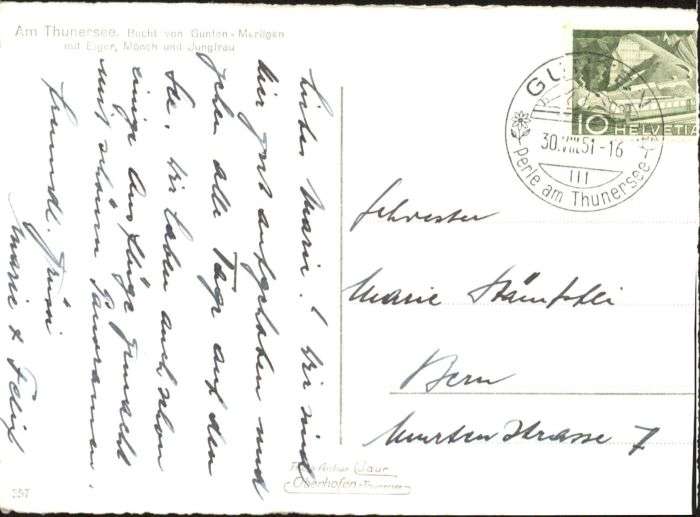 Am Thunersee. Bucht von Gunten-Merligen
mit Eiger, Mönch und Jungfrau
10 HELVETIA
GUNTEN
30.VIII.51-16
III
Perle am Thunersee
Liebe Marie! Wir sind
hier gut aufgehoben und
gehen alle Tage auf den
See, wir haben auch schon
einige Ausflüge gemacht
mit schönen Panoramen.
freundl. Grüsse
Marie &
Schwester
Marie Stämpfli
Bern
Murtenstrasse 7
Photo Arthur Baur
Oberhofen-Thunersee
357